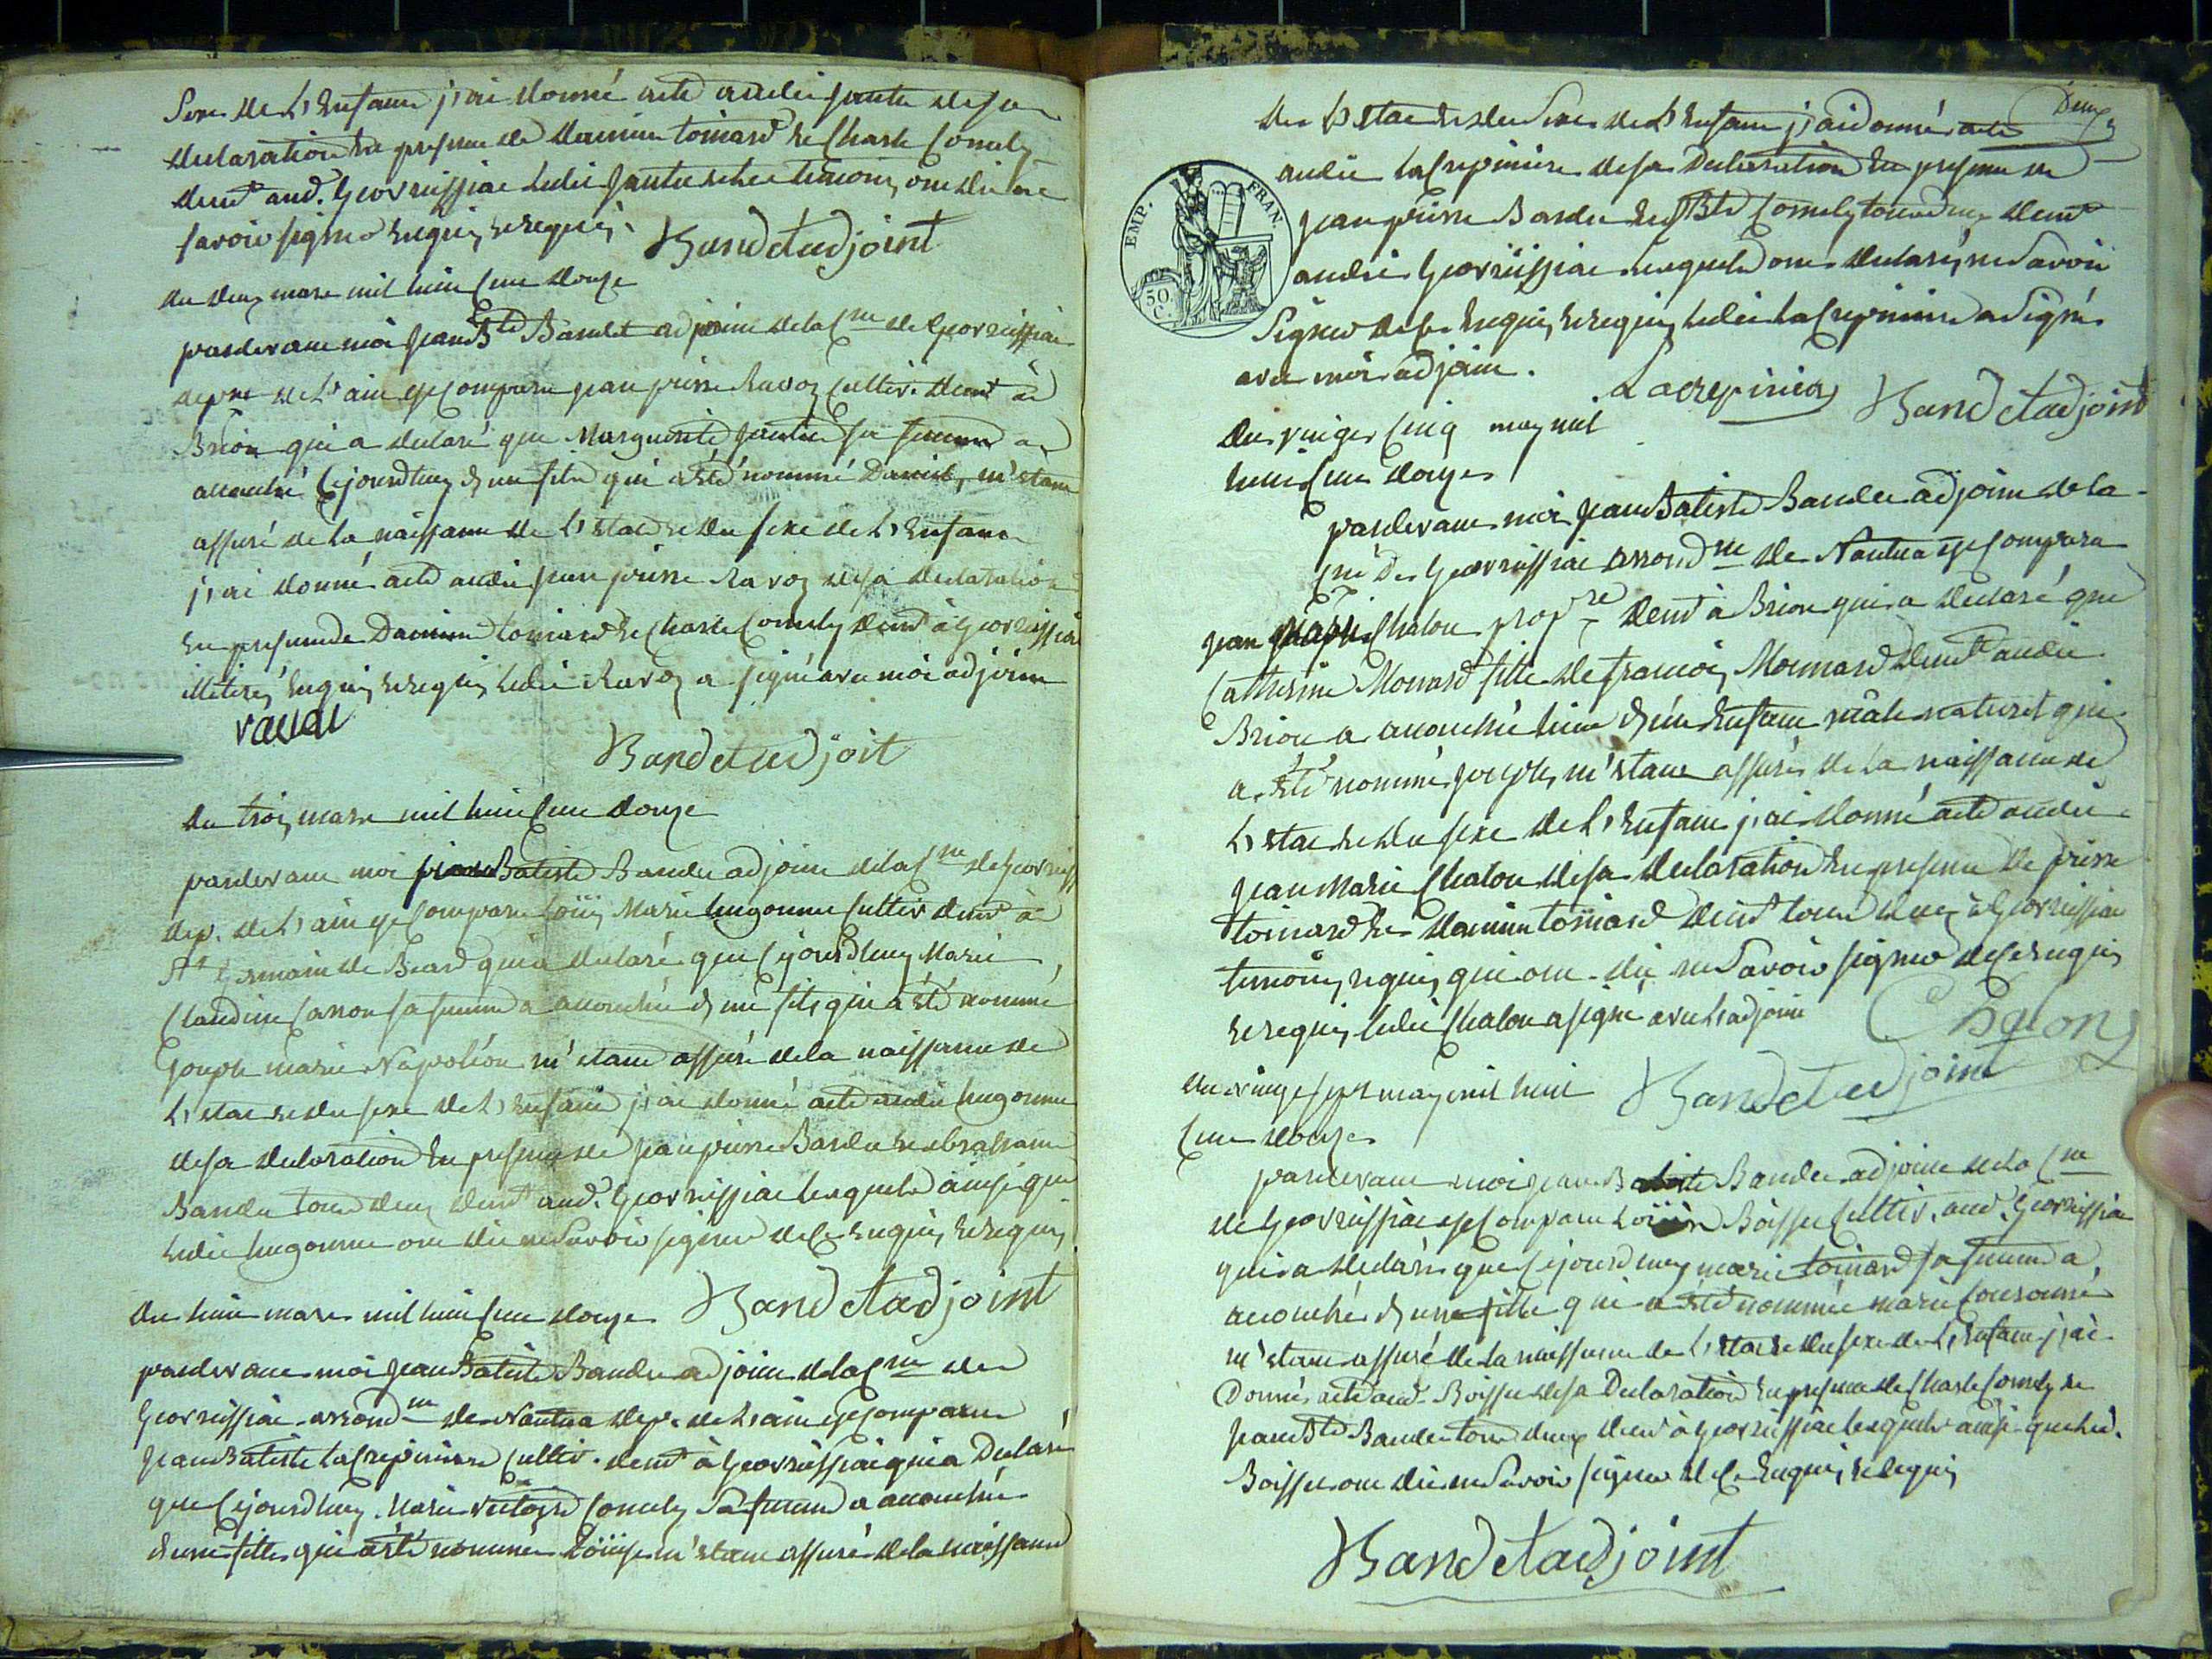 Sexe de L'Enfant j'ai donné acte audit jantet de sa
declaration En presence de damien tornard Et Charle Comely
demt aud. Geovreissiac ledit jantet et les temoins ont dit ne
savoir signer Enquis et requis. Bandet adjoint
du deux mars mil huit Cent douze
pardevant moi jean Bte Bandet adjoint de la Cne de Geovreissiac
depar de L'ain est Comparu jean pierre Ravoy Cultiv. demt à
Brion qui a declaré que Marguerite jantet sa femme a
accouché Cejourdhuy d'un fils qui a Eté nommé Daniel, m'etant
assuré de la naissance de L'etat et du sexe de L'Enfant
j'ai donné acte audit jean pierre Ravoy de sa declaration
En presence de Damien tornard Et Charle Comely demt à Geovreissiac
illitirés Enquis et requis ledit Ravoy a signé avec moi adjoint
ravoi
Bandet adjoit
du trois mars mil huit Cent douze
pardevant moi jean Batiste Bandet adjoint de la Cne de Geovreiss
dep. de L'ain est Comparu Loüis Marie hugonnet Cultiv demt à
St Germain de Beard qui a declaré que Cejourdhuy Marie
Claudine Carron sa femme a accouché d'un fils qui a été nommé
Joseph marie Napoléon m'etant assuré de la naissance de
L'etat et du sexe de L'Enfant j'ai donné acte audit hugonnet
de sa declaration En presence de jean pierre Bandet Et abraham
Bandet tous deux demt aud. Geovreissiac lesquels ainsi que
ledit hugonnet ont dit ne Savoir signer de Ce Enquis et requis
du huit mars mil huit Cent douze Bandet adjoint
pardevant moi jean Batiste Bandet adjoint de la Cne de
Geovreissiac arrond.m de Nantua dep. de L'ain est Comparu
jean Batiste Lacrepiniere Cultiv. demt à Geovreissiac qui a Declaré
que Cejourdhuy Marie victoire Comely Sa femme a accouché
d'une fille qui a été nommée Loüise m'etant assuré de la naissance
Deux
de L'etat et du Sexe de L'Enfant j'ai donné acte
audit Lacrepiniere de sa Declaration En presence de
jean pierre Bandet Et J Bte Comely tous deux demt
audit Geovreissiac lesquels ont declaré ne Savoir
Signer de Ce Enquis et requis ledit Lacrepiniere a Signé
avec moi adjoint.
Lacrepinier Bandet adjoint
EMP. FRAN.
50 C.
du vingt Cinq may mil
huit Cent douze
pardevant moi jean Batiste Bandet adjoint de la
Cne De Geovreissiac arrondme de Nantua est Comparu
jean Marie Chalon propre demt à Brion qui a declaré que
Catherine Monard fille de francois Monnard demt audit
Brion a accouché hier d'un Enfant mâle naturel qui
a Eté nommé joseph, m'etant assuré de la naissance de
L'etat et du sexe de L'Enfant j'ai donné acte audit
jean Marie Chalon de sa declaration En presence de pierre
tornard Et damien tornard demt tous deux à Geovreissiac
temoins requis qui ont dit ne Savoir signer de Ce Enquis
et requis ledit Chalon a signé avec L'adjoint Chalon
Bandet adjoint
du vingt sept may mil huit
Cent douze
pardevant moi jean Batiste Bandet adjoint de la Cne
de Geovreissiac est Comparu Loüis Boisset Cultiv. aud. Geovreissiac
qui a declaré que Cejourdhuy marie tornard sa femme a
accouché d'une fille qui a Eté nommée marie
m'etant assuré de la naissance de L'etat et du sexe de L'Enfant j'ai
Donné acte aud. Boisset de sa Declaration En presence de Charle Comely et
jean Bte Bandet tous deux demt à Geovreissiac lesquels ainsi que led.
Boisset ont dit ne Savoir signer de Ce Enquis et requis
Bandet adjoint